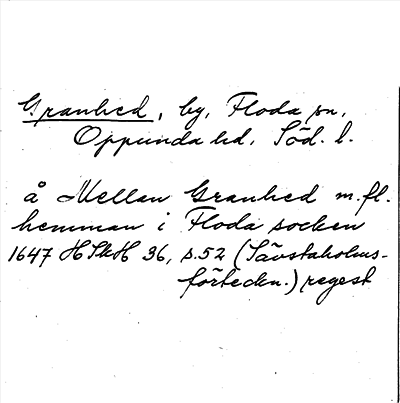 Granhed, by, Floda sn,
Oppunda hd, Söd. l.
å Mellan Granhed m.fl.
hemman i Floda socken
1647 HSkH 36, s.52 (Sävstaholms-
förteckn.) regest